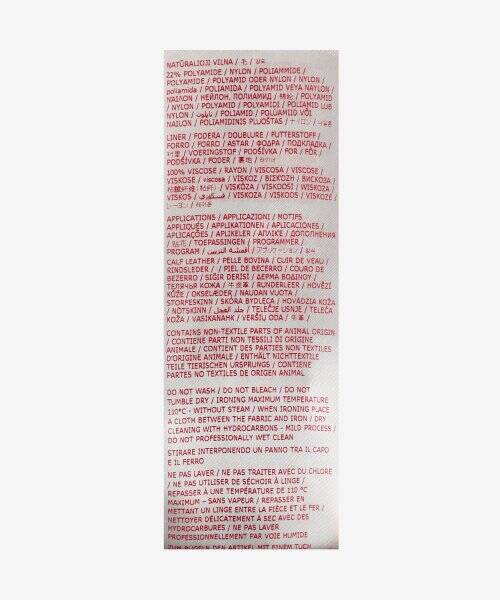 NATŪRALIOJI VILNA / 毛 /
22% POLYAMIDE / NYLON / POLIAMMIDE /
POLYAMIDE / POLYAMID ODER NYLON / NYLON /
poliamida / POLIAMIDA / POLYAMID VEYA NAYLON /
ΝΑΪΛΟΝ / НЕЙЛОН, ПОЛИАМИД / 锦纶 / POLYAMID
/ NYLON / POLYAMID / POLYAMIDI / POLIAMID LUB
NYLON / نايلون / POLIAMID / POLÜAMIID VÕI
NAILON / POLIAMIDINIS PLUOŠTAS / ナイロン /
LINER / FODERA / DOUBLURE / FUTTERSTOFF /
FORRO / FORRO / ASTAR / ΦΟΔΡΑ / ПОДКЛАДКА
/ 衬里 / VOERINGSTOF / PODŠÍVKA / FOR / FÔR /
PODŠÍVKA / FODER / 裏地 /
100% VISCOSE / RAYON / VISCOSA / VISCOSE /
VISKOSE / viscosa / VISKOZ / ΒΙΣΚΟΖΗ / ВИСКОЗА /
粘胶纤维 / VISKÓZA / VISKOOSI / WISKOZA
/ VISKOS / فسكوزي / VISKÓZA / VISKOOS / VISKOZĖ
/ レーヨン /
APPLICATIONS / APPLICAZIONI / MOTIFS
APPLIQUÉS / APPLIKATIONEN / APLICACIONES /
APLICAÇÕES / APLIKELER / ΑΠΛΙΚΕ / ДОПОЛНЕНИЯ
/ 贴花 / TOEPASSINGEN / PROGRAMMER /
PROGRAM / أقمشة التزيين / アプリケーション /
CALF LEATHER / PELLE BOVINA / CUIR DE VEAU /
RINDSLEDER / / PIEL DE BECERRO / COURO DE
BEZERRO / SIĞIR DERİSİ / ΔΕΡΜΑ ΒΟΔΙΝΟΥ /
ТЕЛЯЧЬЯ КОЖА / 牛皮革 / RUNDERLEER / HOVĚZÍ
KŮŽE / OKSELÆDER / NAUDAN VUOTA /
STORFESKINN / SKÓRA BYDLĘCA / HOVÄDZIA KOŽA
/ NÖTSKINN / جلد العجل / TELEČJE USNJE / TELEĆA
KOŽA / VASIKANAHK / VERŠIŲ ODA / 牛革 /
CONTAINS NON-TEXTILE PARTS OF ANIMAL ORIGIN
/ CONTIENE PARTI NON TESSILI DI ORIGINE
ANIMALE / CONTIENT DES PARTIES NON TEXTILES
D'ORIGINE ANIMALE / ENTHÄLT NICHTTEXTILE
TEILE TIERISCHEN URSPRUNGS / CONTIENE
PARTES NO TEXTILES DE ORIGEN ANIMAL
DO NOT WASH / DO NOT BLEACH / DO NOT
TUMBLE DRY / IRONING MAXIMUM TEMPERATURE
110°C - WITHOUT STEAM / WHEN IRONING PLACE
A CLOTH BETWEEN THE FABRIC AND IRON / DRY
CLEANING WITH HYDROCARBONS - MILD PROCESS /
DO NOT PROFESSIONALLY WET CLEAN
STIRARE INTERPONENDO UN PANNO TRA IL CAPO
E IL FERRO
NE PAS LAVER / NE PAS TRAITER AVEC DU CHLORE
/ NE PAS UTILISER DE SÉCHOIR À LINGE /
REPASSER À UNE TEMPÉRATURE DE 110 °C
MAXIMUM – SANS VAPEUR / REPASSER EN
METTANT UN LINGE ENTRE LA PIÈCE ET LE FER /
NETTOYER DÉLICATEMENT À SEC AVEC DES
HYDROCARBURES / NE PAS LAVER
PROFESSIONNELLEMENT PAR VOIE HUMIDE
ZUM BÜGELN DEN ARTIKEL MIT EINEM TUCH